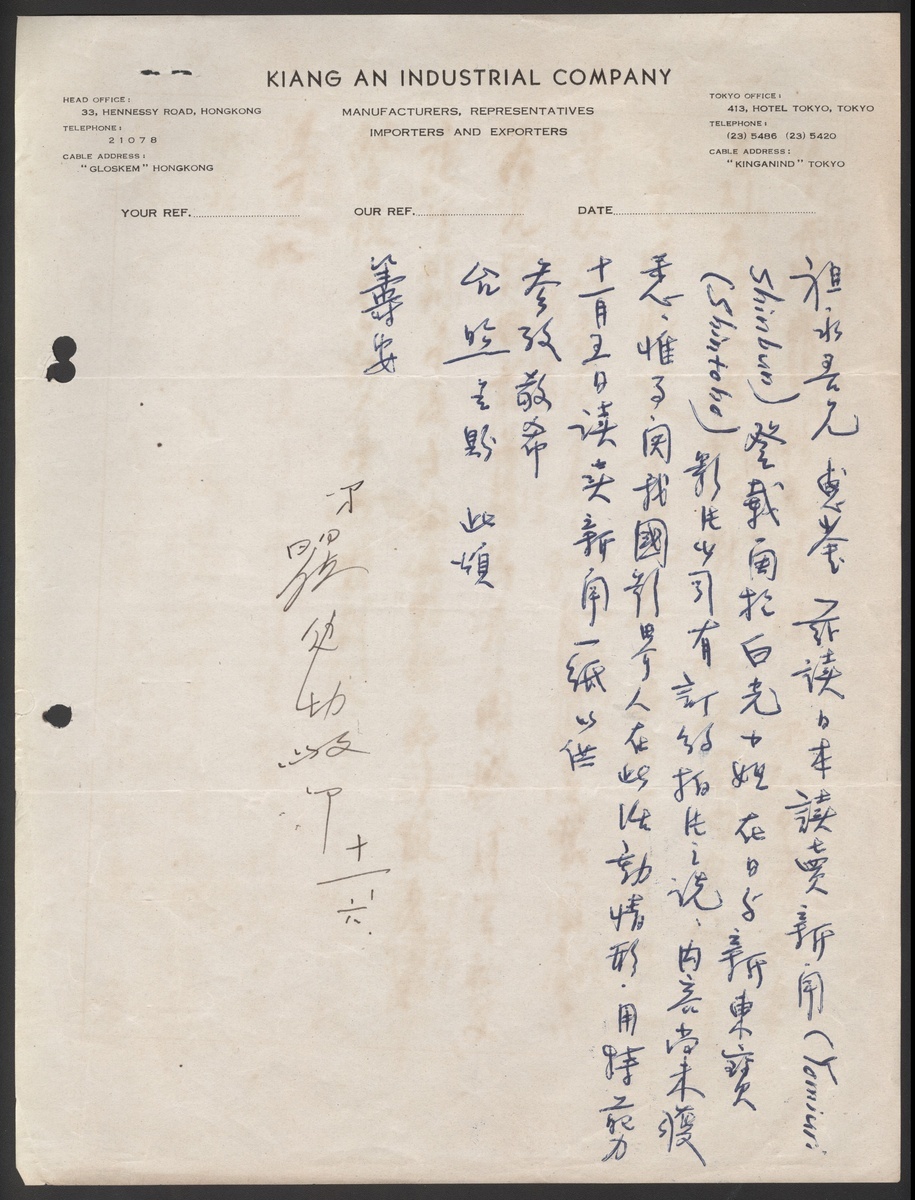 KIANG AN INDUSTRIAL COMPANY
MANUFACTURERS, REPRESENTATIVES
IMPORTERS AND EXPORTERS
HEAD OFFICE:
33, HENNESSY ROAD, HONGKONG
TELEPHONE:
21078
CABLE ADDRESS:
"GLOSKEM" HONGKONG
TOKYO OFFICE:
413, HOTEL TOKYO, TOKYO
TELEPHONE:
(23) 5486 (23) 5420
CABLE ADDRESS:
"KINGANIND" TOKYO
YOUR REF.
OUR REF.
DATE
祖永吾兄 惠鑒 茲讀日本讀賣新聞(Yomiuri
Shinbun)登載關於白光小姐在日与新東寶
(Shintoho)影片公司有訂約拍片之說、內容尚未獲
悉、惟事関我國影界人在此活動情形、用特
十一月五日讀賣新聞一紙以供
參攷敬希
台照 此頌
籌安
弟
瞿
敬
十一
六